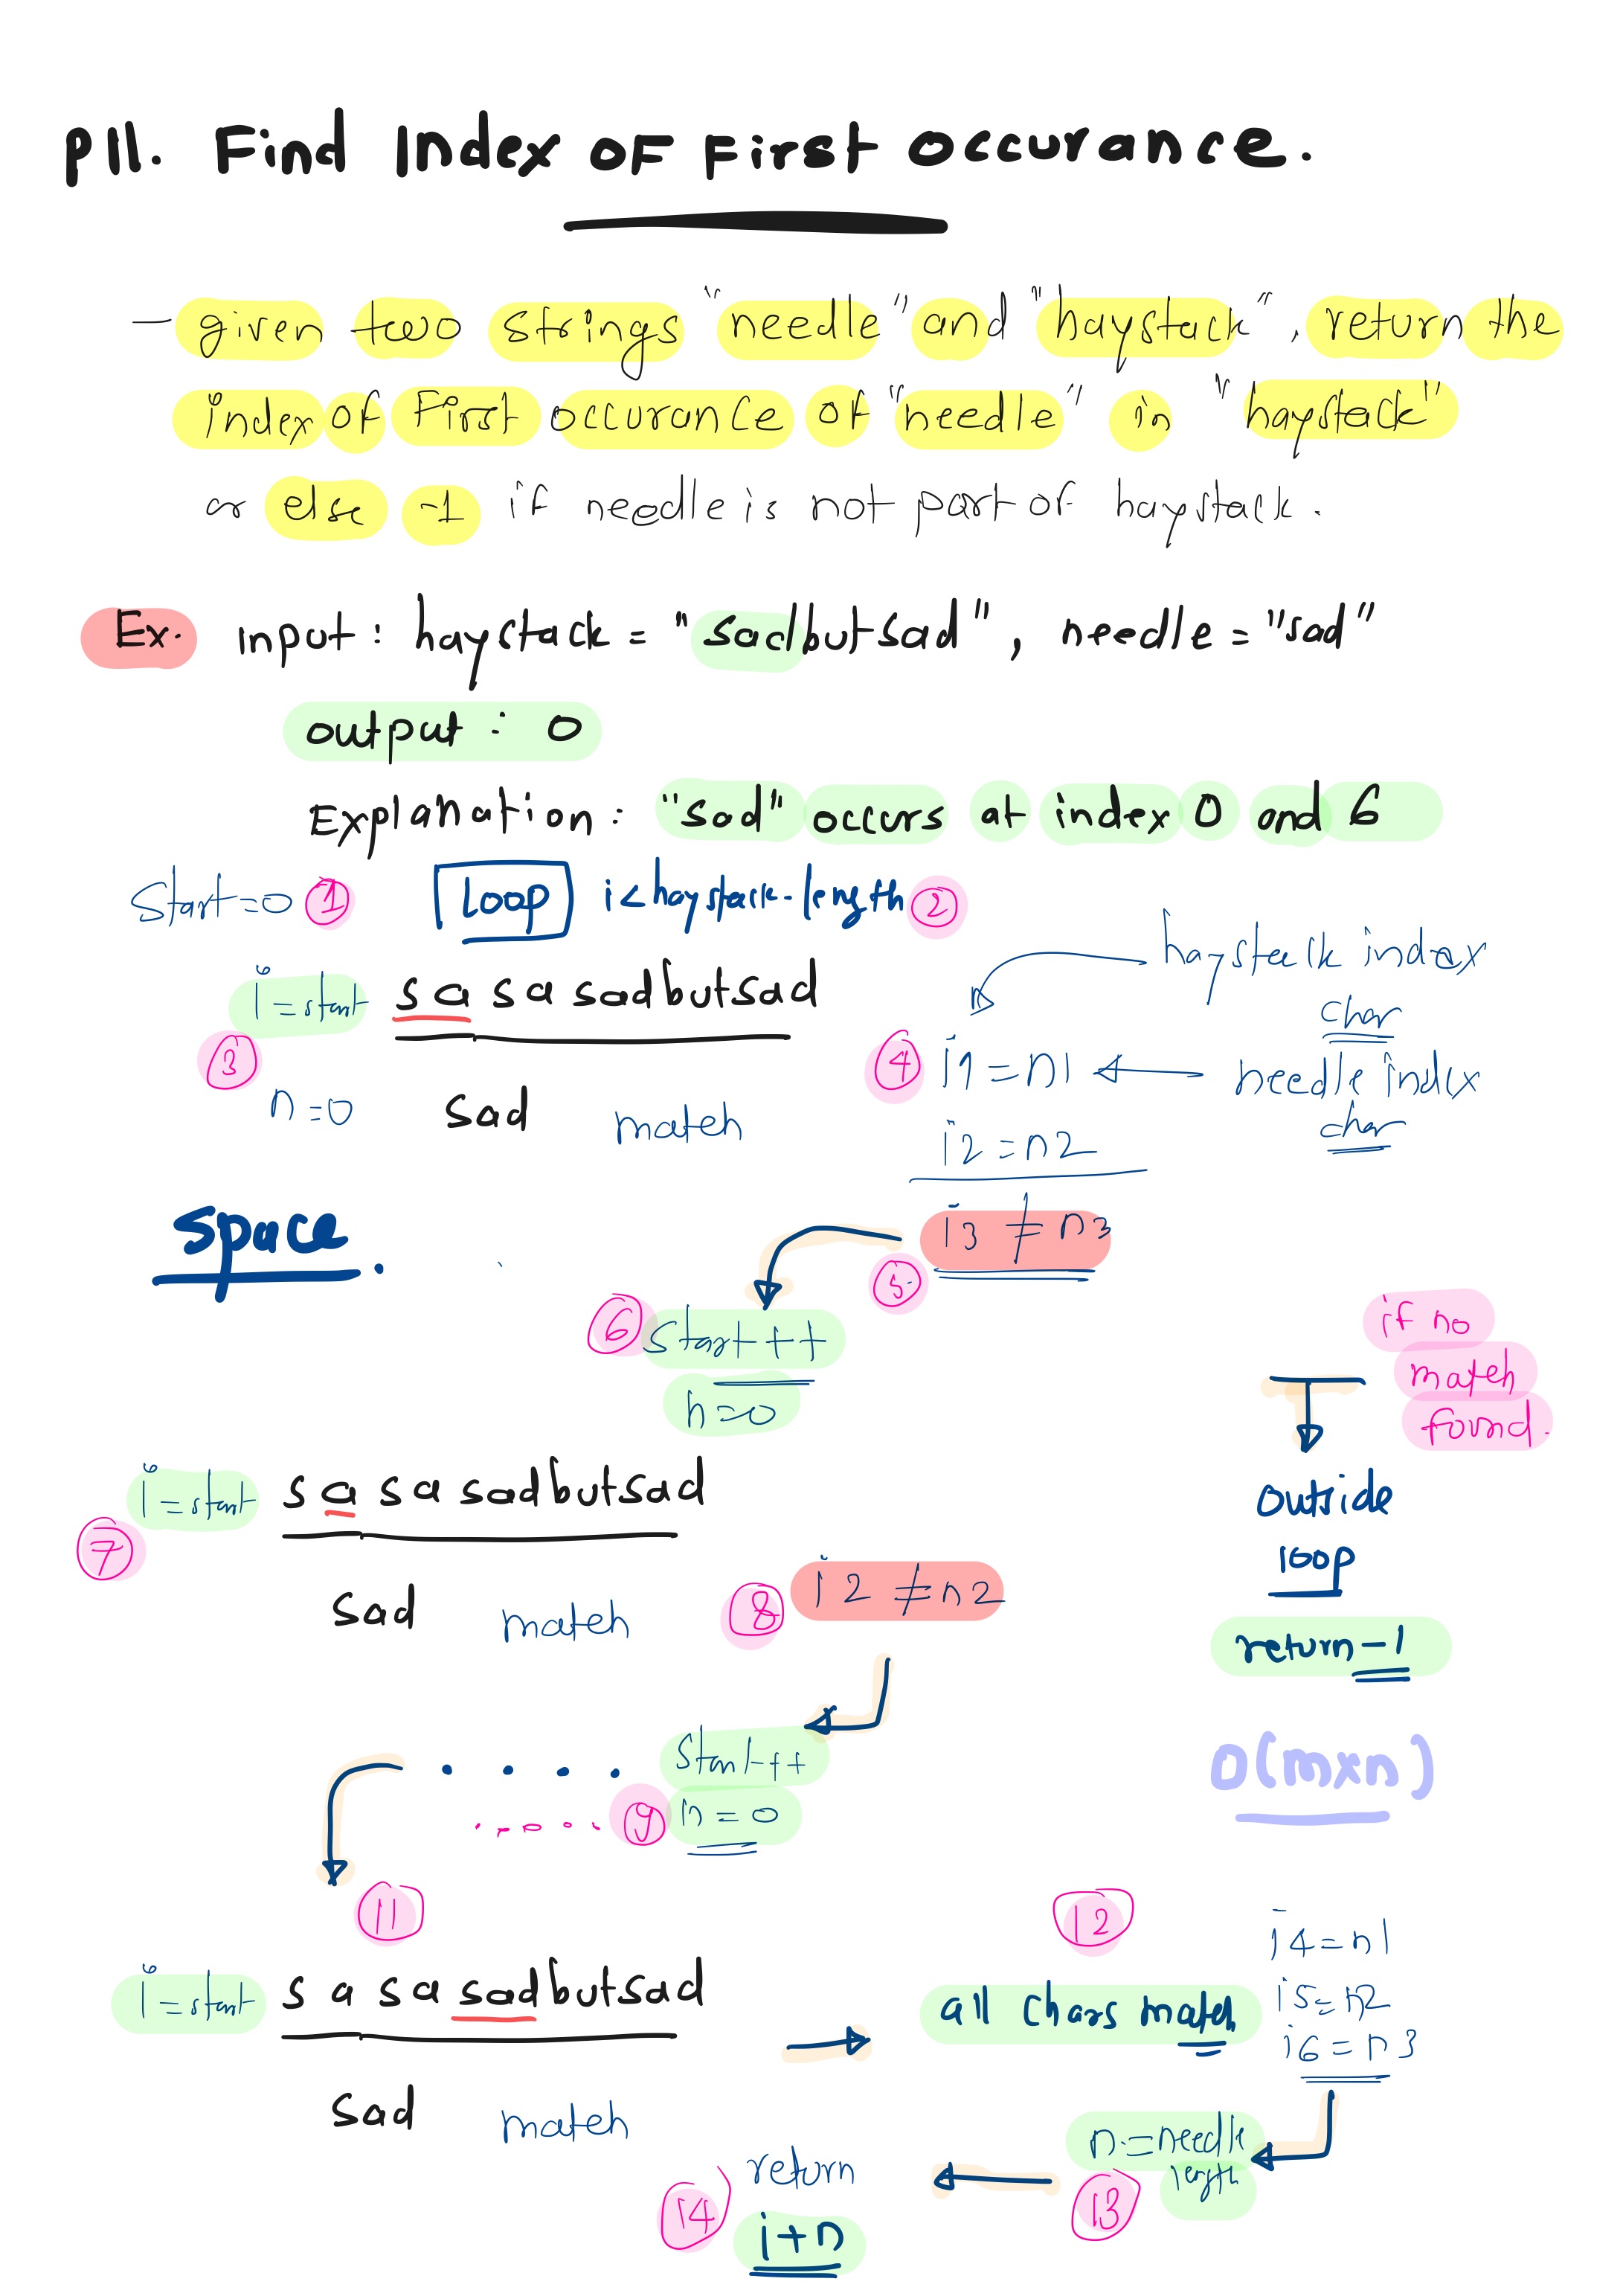 P11. Find Index of First Occurance.
- given two strings "needle" and "haystack", return the
index of First occurance of "needle" in "haystack"
or else -1 if needle is not part of haystack.
Ex. input : haystack = "sadbutsad", needle = "sad"
output : 0
Explanation : "sad" occurs at index 0 and 6
Start=0 1 Loop i<haystack.length 2
haystack index
char
i=start s a s a sadbutsad
3
4 i1=n1 needle index
char
n=0 sad match
i2=n2
i3≠n3
5.
space.
6 Start++
n=0
if no
match
found.
outside
loop
return -1
O(m×n)
i=start s a s a sadbutsad
7
sad match
8 i2≠n2
. . . . Start++
..... 9 n=0
11
i=start s a s a sadbutsad
sad match
12
all chars match
i4=n1
i5=n2
i6=n3
n=needle
length
13
return
14
i+n